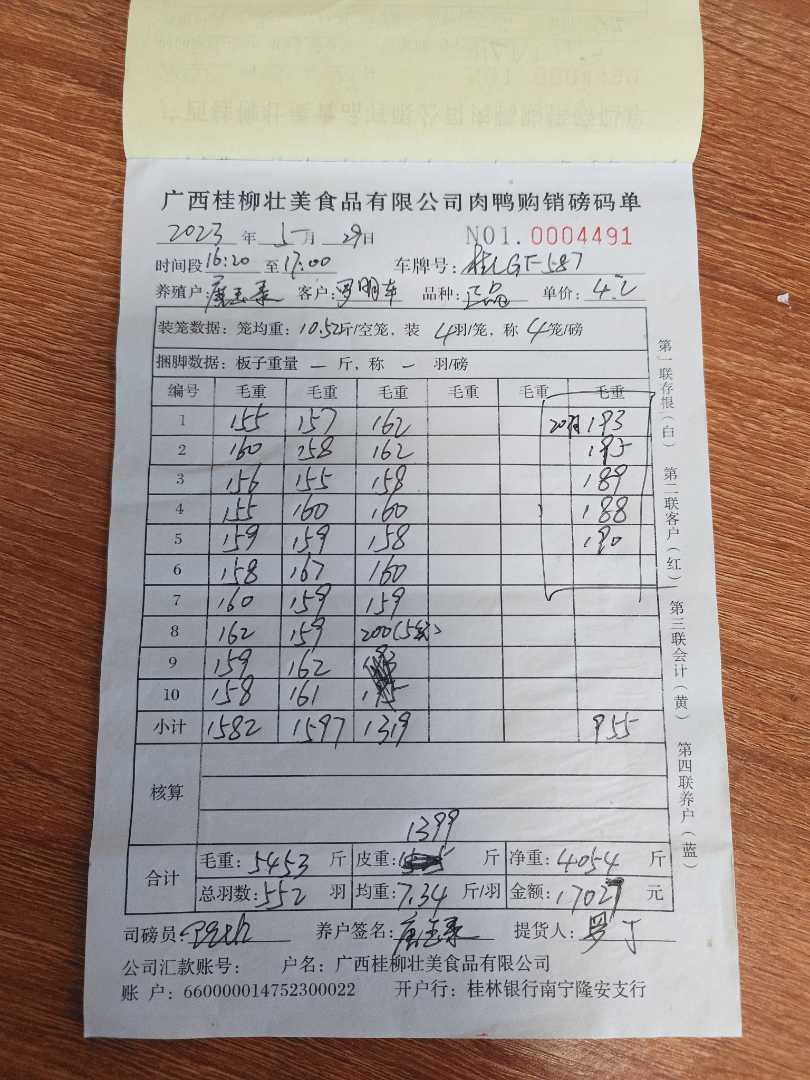 广西桂柳壮美食品有限公司肉鸭购销磅码单
2023 年 5 月 29 日 NO1. 0004491
时间段 16:20 至 17:00 车牌号: 桂LGF587
养殖户: 客户: 罗明车 品种: 正品 单价: 4.2
装笼数据: 笼均重: 10.52 斤/空笼, 装 4 羽/笼, 称 4 笼/磅
捆脚数据: 板子重量 — 斤, 称 — 羽/磅
编号 毛重 毛重 毛重 毛重 毛重 毛重
1 155 157 162 193
2 160 158 162 195
3 156 155 158 189
4 155 160 160 188
5 159 159 158 190
6 158 167 160
7 160 159 159
8 162 159 200
9 159 162
10 158 161
小计 1582 1597 1319 955
核算
1399
合计 毛重: 5453 斤 皮重: 斤 净重: 4054 斤
总羽数: 552 羽 均重: 7.34 斤/羽 金额: 17027 元
司磅员: 养户签名: 提货人: 罗丁
公司汇款账号: 户名: 广西桂柳壮美食品有限公司
账 户: 660000014752300022 开户行: 桂林银行南宁隆安支行
第一联存根(白) 第二联客户(红) 第三联会计(黄) 第四联养户(蓝)